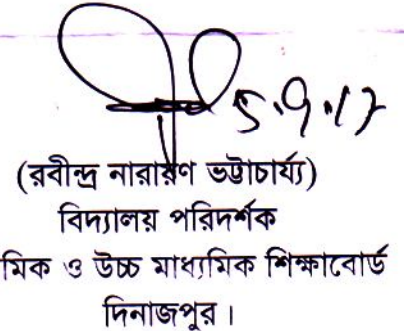 ৫.৭.১৭
(রবীন্দ্র নারায়ণ ভট্টাচার্য্য)
বিদ্যালয় পরিদর্শক
মিক ও উচ্চ মাধ্যমিক শিক্ষাবোর্ড
দিনাজপুর।